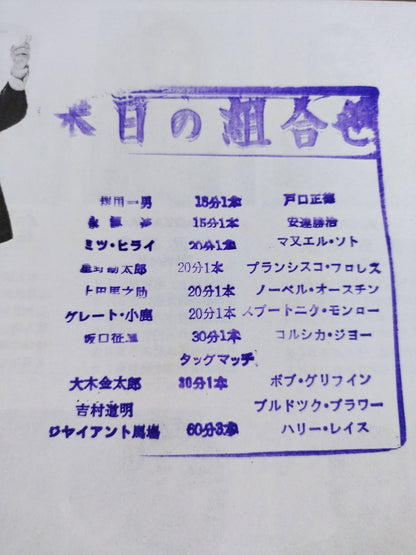 本日の組合せ
桜田一男 15分1本 戸口正徳
永源遙 15分1本 安達勝治
ミツ・ヒライ 20分1本 マヌエル・ソト
星野勘太郎 20分1本 フランシスコ・フロレス
上田馬之助 20分1本 ノーベル・オースチン
グレート・小鹿 20分1本 スプートニク・モンロー
坂口征二 30分1本 コルシカ・ジョー
タッグマッチ
大木金太郎 30分1本 ボブ・グリフイン
吉村道明 ブルドック・ブラワー
ジヤイアント馬場 60分3本 ハリー・レイス